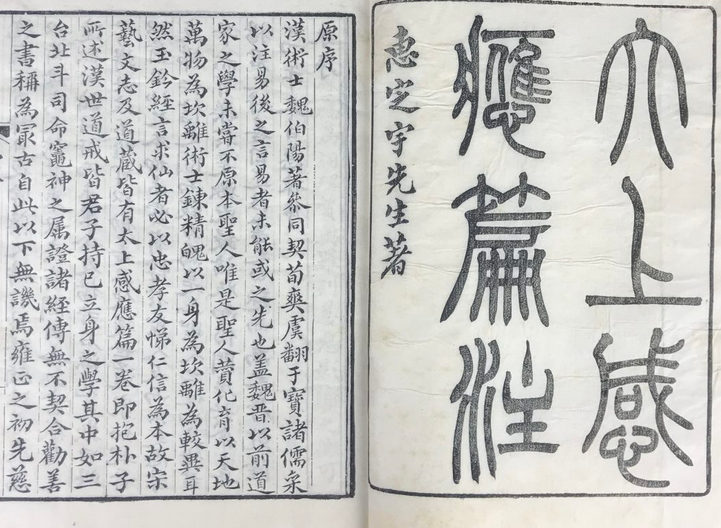 太上感
應篇注
惠定宇先生著
原序
漢術士魏伯陽著叅同契荀爽虞翻于寶諸儒采
以注易後之言易者未能或之先也盖魏晉以前道
家之學未嘗不原本聖人唯是聖人贊化育以天地
萬物為坎離術士鍊精魄以一身為坎離為較異耳
然玉鈐經言求仙者必以忠孝友悌仁信為本故宋
藝文志及道藏皆有太上感應篇一卷即抱朴子
所述漢世道戒皆君子持己立身之學其中如三
台北斗司命竈神之属證諸經傳無不契合勸善
之書稱為㝡古自此以下無譏焉雍正之初先慈